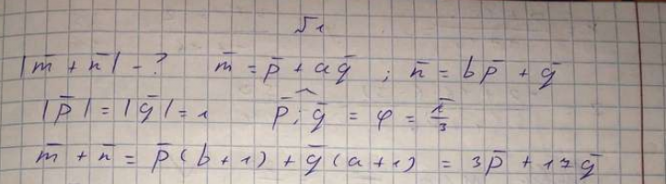 √1
|m̅ + n̅| - ? m̅ = p̅ + aq̅ ; n̅ = bp̅ + q̅
|p̅| = |q̅| = 1 p̅;q̅ = φ = π/3
m̅ + n̅ = p̅(b+1) + q̅(a+1) = 3p̅ + 17q̅